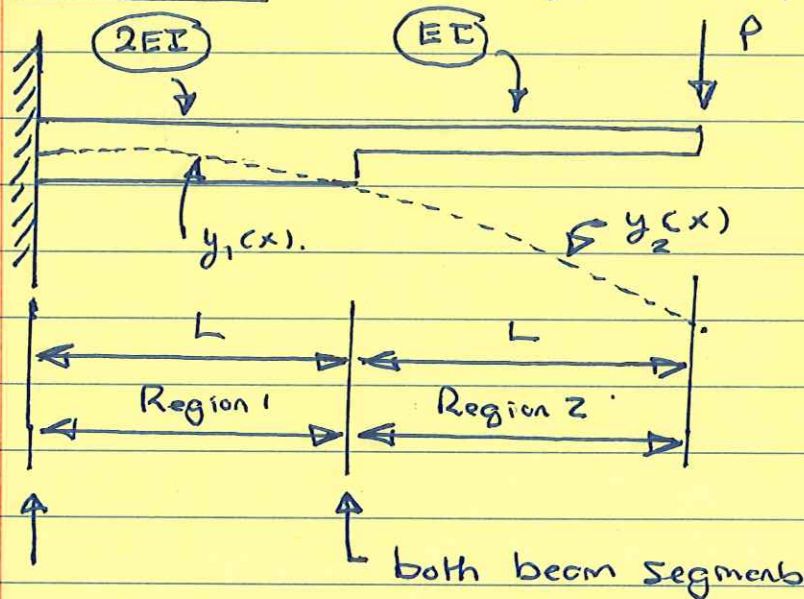 2EI EI P
y₁(x). y₂(x)
L L
Region 1 Region 2
both beam segments